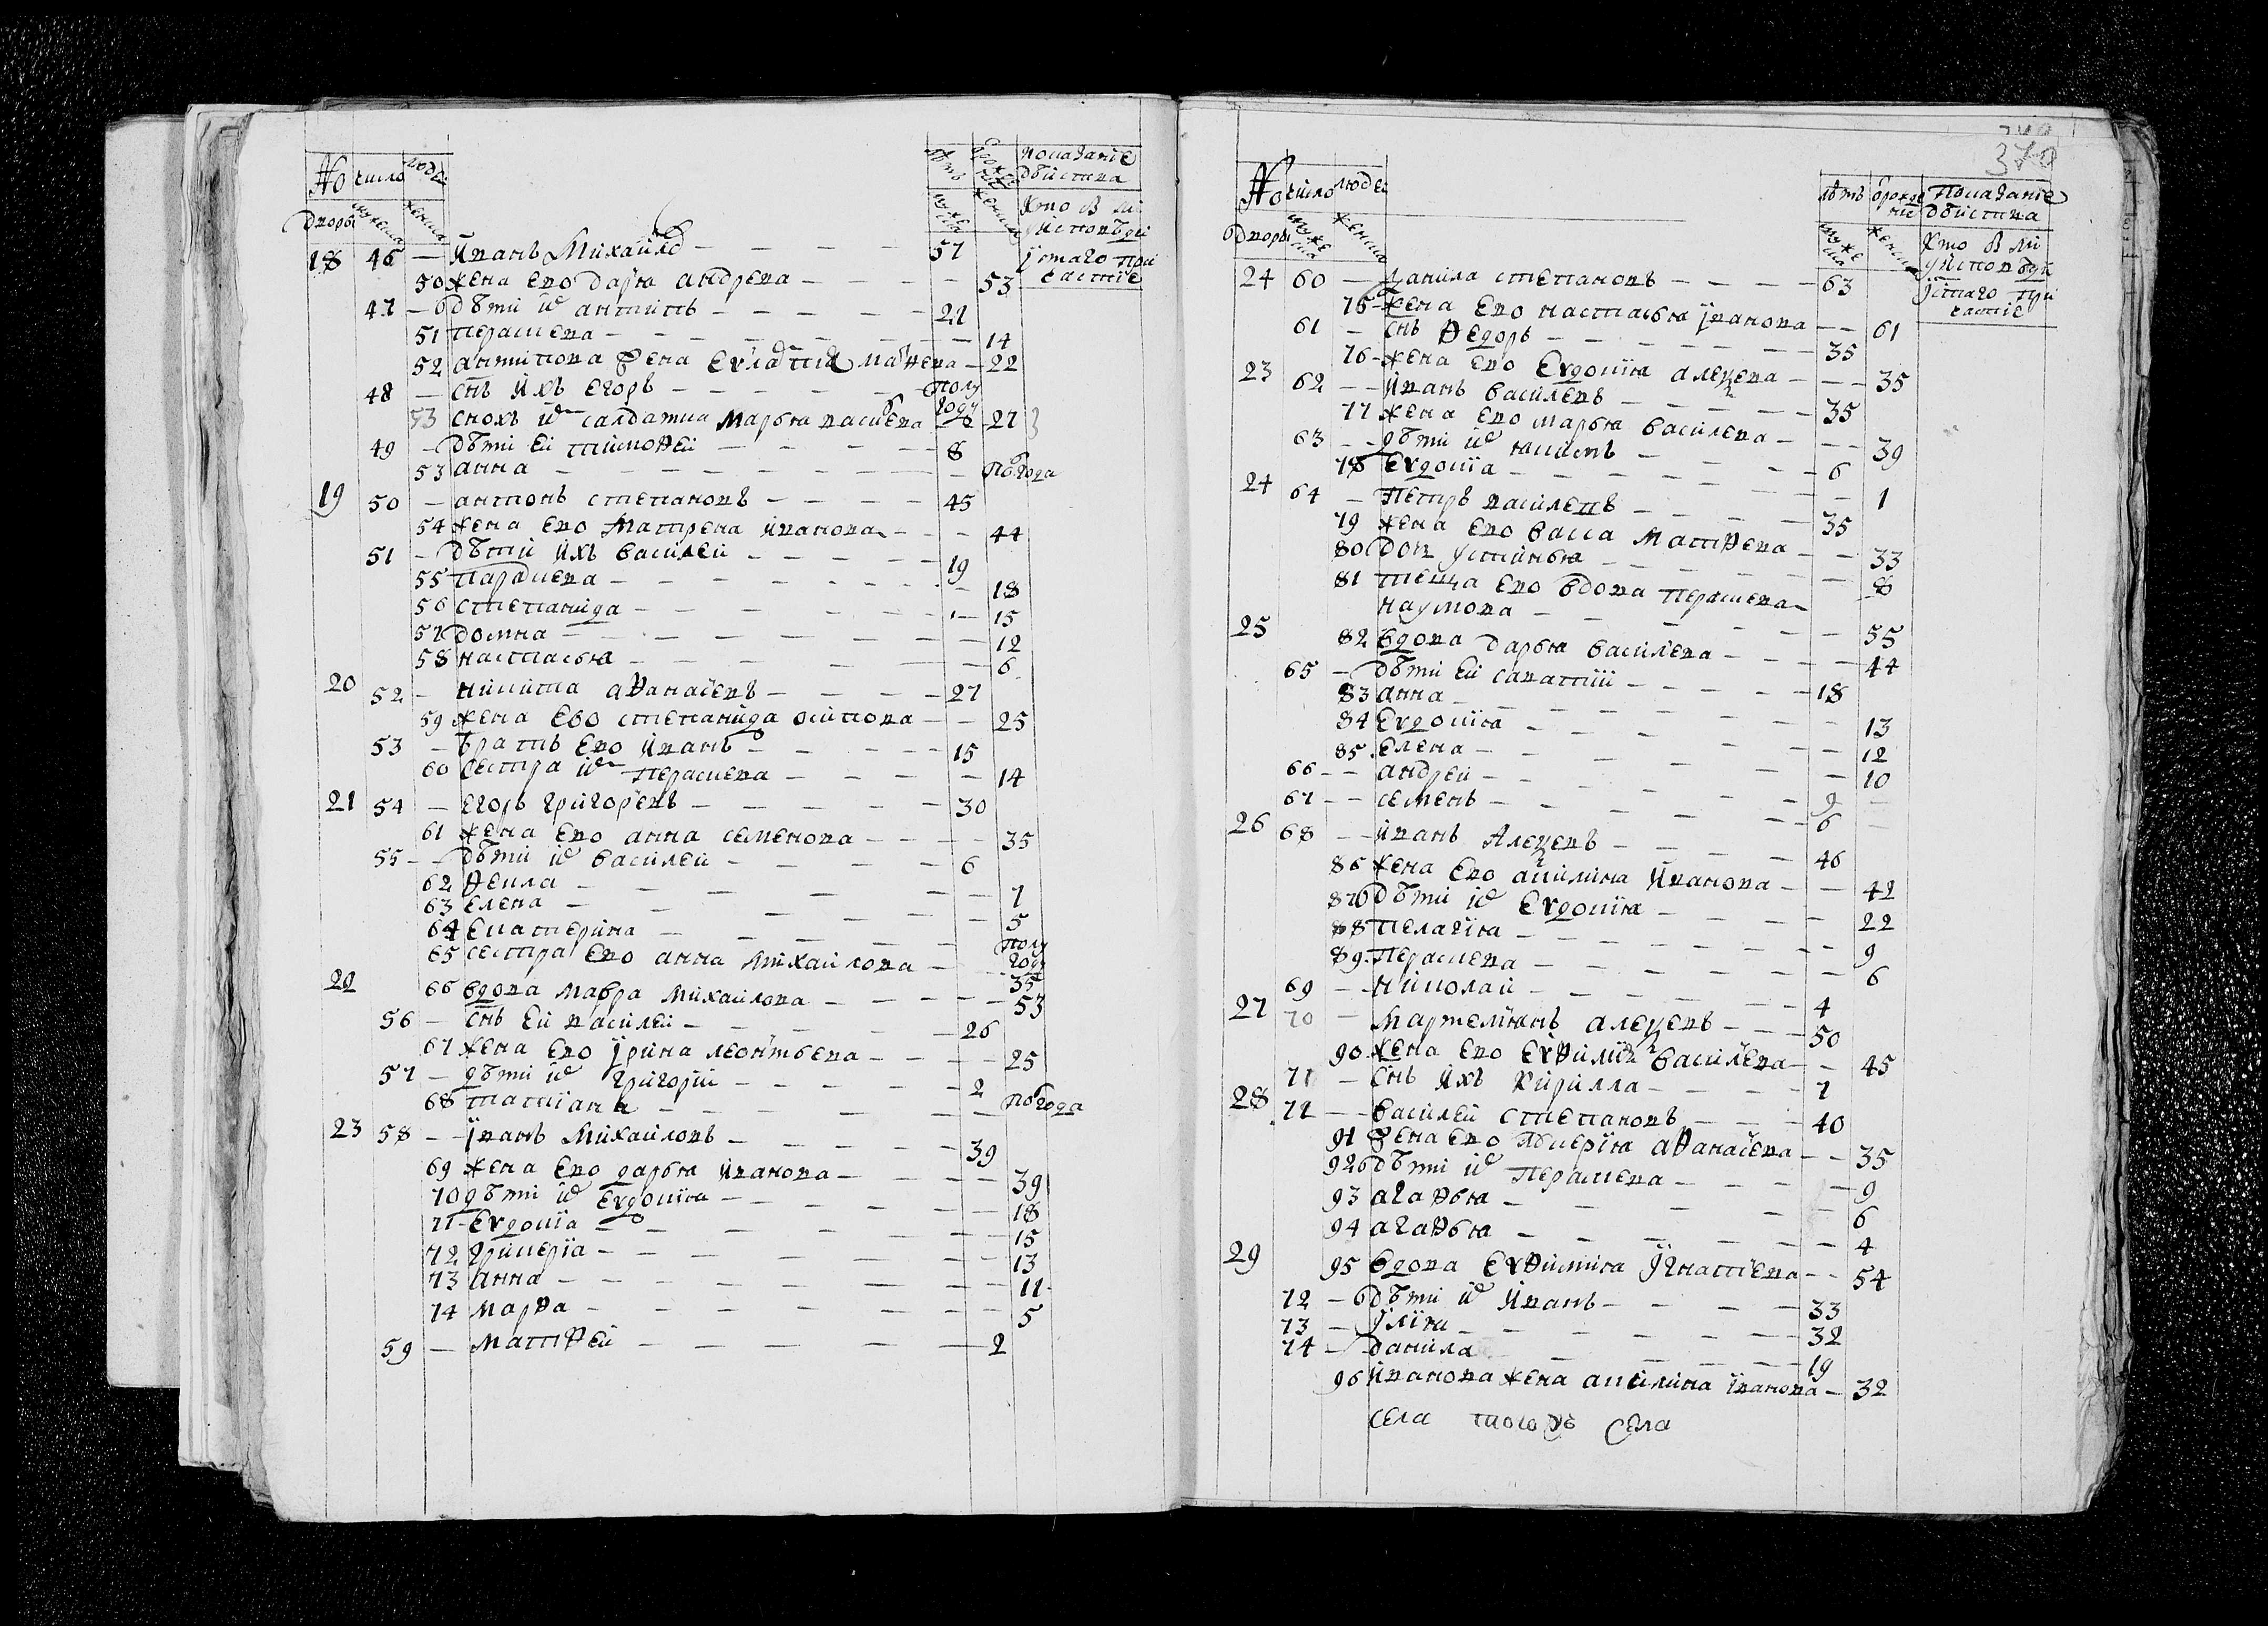 No число людей
дворы мужеска женска
лѣтъ
мужеска женска
показаніе
дѣйства
Кто в ли
у исповѣди
ў стаго при
частіе
18 46 — Иванъ Михайло — 57
50 жена ево дарья андрева — 53
47 — дѣти их антипъ — 21
51 перасковя — 14
52 антипова жена Евладия маѳѣева — 22
48 — снъ ихъ егоръ — полу году
53 снохъ их салдатка Марья василева — 27
49 — дѣти еи тимоѳеи — 8
53 анна — полгода
19 50 — антонъ степановъ — 45
54 жена ево Матрена иванова — 44
51 — дѣти ихъ василеи — 19
55 парасковя — 18
56 степанида — 15
57 домна — 12
58 настасья — 6
20 52 — никита аѳанасевъ — 27
59 жена ево степанида осипова — 25
53 — братъ ево иванъ — 15
60 сестра их перасковя — 14
21 54 — егоръ григоревъ — 30
61 жена ево анна семенова — 35
55 — дѣти их василеи — 6
62 ѳекла — 7
63 елена — 5
64 екатерина — полу году
65 сестра ево анна михаилова — 35
22 66 вдова мавра михаилова — 53
56 — снъ еи василеи — 26
67 жена ево ирина леонтьева — 25
57 — дѣти их григории — 2
68 татиана — полгода
23 58 — иванъ михаиловъ — 39
69 жена ево дарья иванова — 39
70 дѣти их евдокия — 18
71 евдокиа — 15
72 гликерїа — 13
73 анна — 11
74 марѳа — 5
59 — матѳеи — 2
370
No число людеи
дворы мужеска женска
лѣтъ ѿрожденіе
мужеска женска
показаніе
дѣиства
Кто в ли
у исповѣди
ў стаго при
частіе
24 60 — данила степановъ — 63
75 жена ево настасья иванова — 61
61 — снъ ѳедоръ — 35
76 жена ево Евдокия алеѯева — 35
23 62 — иванъ василевъ — 35
77 жена ево марья василева — 39
63 — дѣти их — 6
78 евдокиа — 1
24 64 — петръ василевъ — 35
79 жена ево васса матѳева — 33
80 доч устинья — 8
81 теща ево вдова перасковя
наумова — 55
25 82 вдова дарья василева — 44
65 — дѣти еи саватии — 18
83 анна — 13
84 евдокия — 12
85 елена — 10
66 — андреи — 9
67 — семенъ — 6
26 68 — иванъ алеѯевъ — 46
86 жена ево акилина иванова — 42
87 дѣти их евдокия — 22
88 пелагия — 9
89 перасковя — 6
69 — николаи — 4
27 70 — мартемянъ алеѯевъ — 50
90 жена ево евѳимия василева — 45
71 — снъ ихъ кирилла — 7
28 72 — василеи степановъ — 40
91 жена ево гликерїя аѳанасева — 35
92 дѣти их перасковя — 9
93 агаѳья — 6
94 агаѳья — 4
29 95 вдова евѳимия игнатева — 54
72 — дѣти их иванъ — 33
73 — илїя — 32
74 — данила — 19
96 иванова жена акилина иванова — 32
села тогожъ села